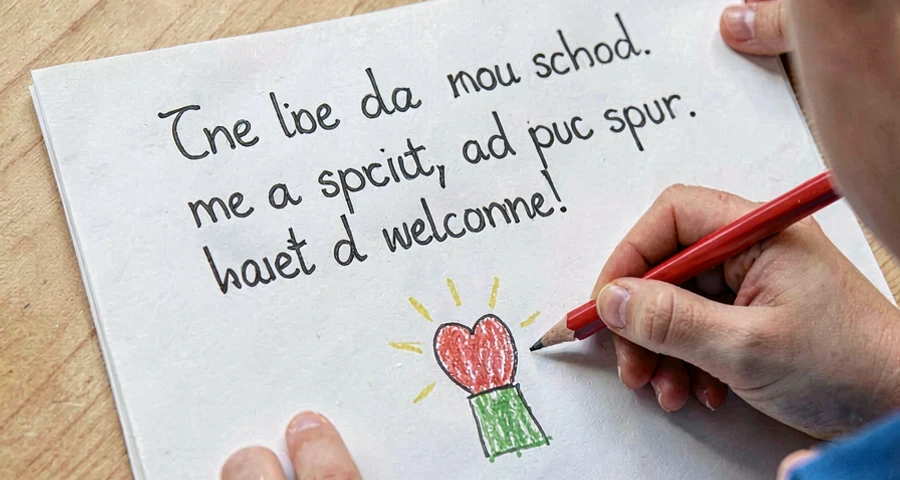 Tne lioe da mou schod.
me a spciut, ad puc spur.
haiet d welconne!